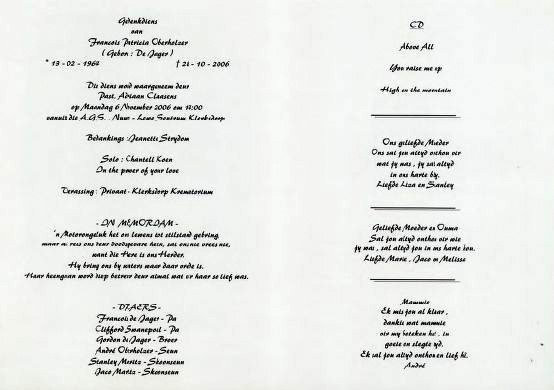 Gedenkdiens
van
Francois Patricia Oberholzer
( Gebore : De Jager )
* 13 - 02 - 1964 † 21 - 10 - 2006
Die diens word waargeneem deur
Past. Adriaan Claasens
op Maandag 6 November 2006 om 11:00
vanuit die A.G.S. . Nuwe - Lewe Sentrum Klerksdorp
Bedankings : Jeanette Strydom
Solo : Chantell Koen
In the power of your love
Verassing : Privaat - Klerksdorp Krematorium
- IN MEMORIAM -
'n Motorongeluk het ons lewens tot stilstand gebring,
want die Here is ons Herder.
Hy bring ons by waters waar daar orde is.
Haar heengaan word diep betreur deur almal wat vir haar so lief was.
- DRAERS -
Francois de Jager - Pa
Clifford Swanepoel - Pa
Gordon de Jager - Broer
André Oberholzer - Seun
Stanley Moritz - Skoonseun
Jaco Maritz - Skoonseun
CD
Above All
You raise me up
High on the mountain
Ons geliefde Moeder
Ons sal jou altyd onthou vir
wat jy was , jy sal altyd
in ons harte bly.
Liefde Liza en Stanley
Geliefde Moeder en Ouma
Sal jou altyd onthou vir wie
jy was , sal altyd jou in ons harte hou.
Liefde Marie , Jaco en Melisse
Mammie
Ek mis jou al klaar ,
dankie wat mammie
vir my beteken het , in
goeie en slegte tyd.
Ek sal jou altyd onthou en lief hê.
André